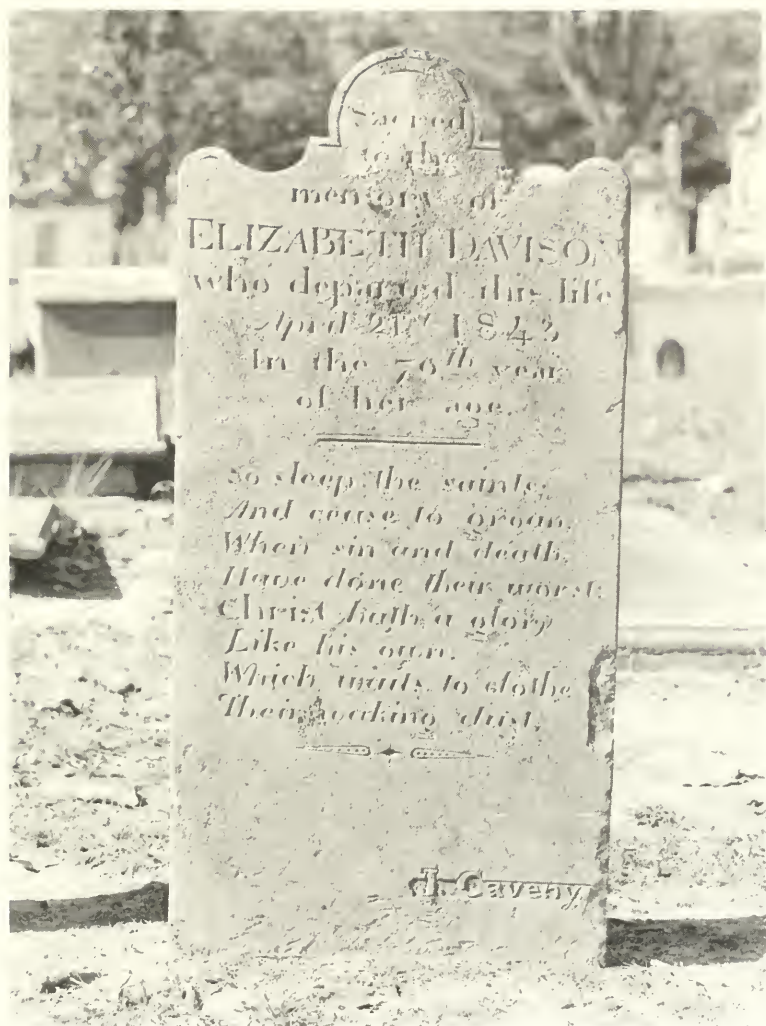 Sacred
to the
memory of
ELIZABETH DAVISON
who departed this life
April 21st 1843
In the 70th year
of her age.
So sleep the saints,
And cease to groan,
When sin and death,
Have done their worst;
Christ hath a glory
Like his own.
Which waits to clothe
Their waking dust.
J. Caveny